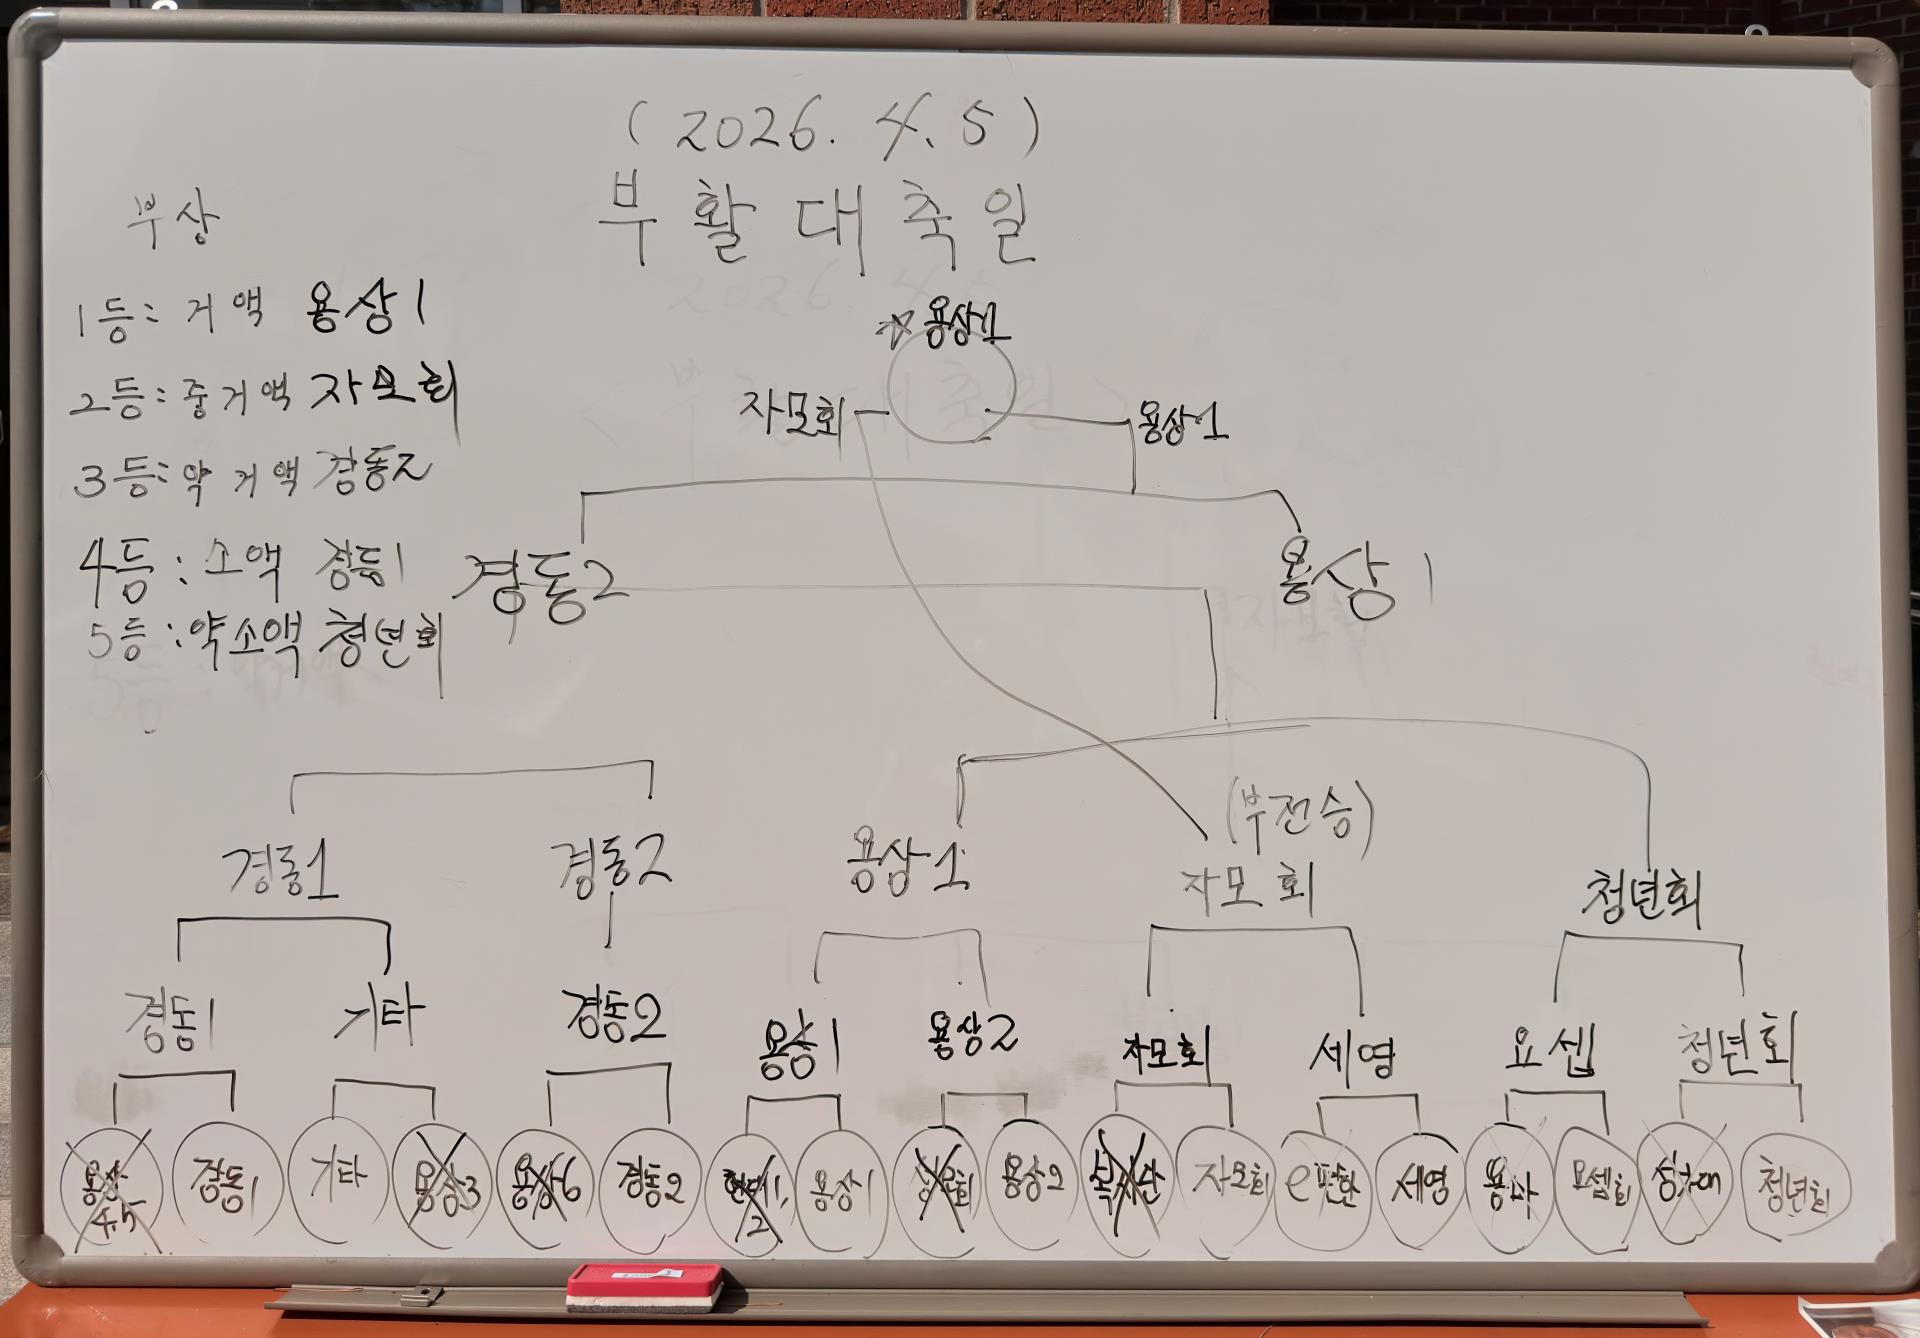 (2026. 4. 5)
부활대축일
부상
1등: 거액 용상1
2등: 중거액 자모회
3등: 약거액 경동2
4등: 소액 경동1
5등: 약소액 청년회
☆ 용상1
자모회 용상1
경동2 용상1
(부전승)
경동1 경동2 용상1 자모회 청년회
경동1 기타 경동2 용상1 용상2 자모회 세영 요셉 청년회
용상4.5 경동1 기타 용상3 용상6 경동2 현대1,2 용상1 용상2 자모회 e편한 세영 요셉회 청년회